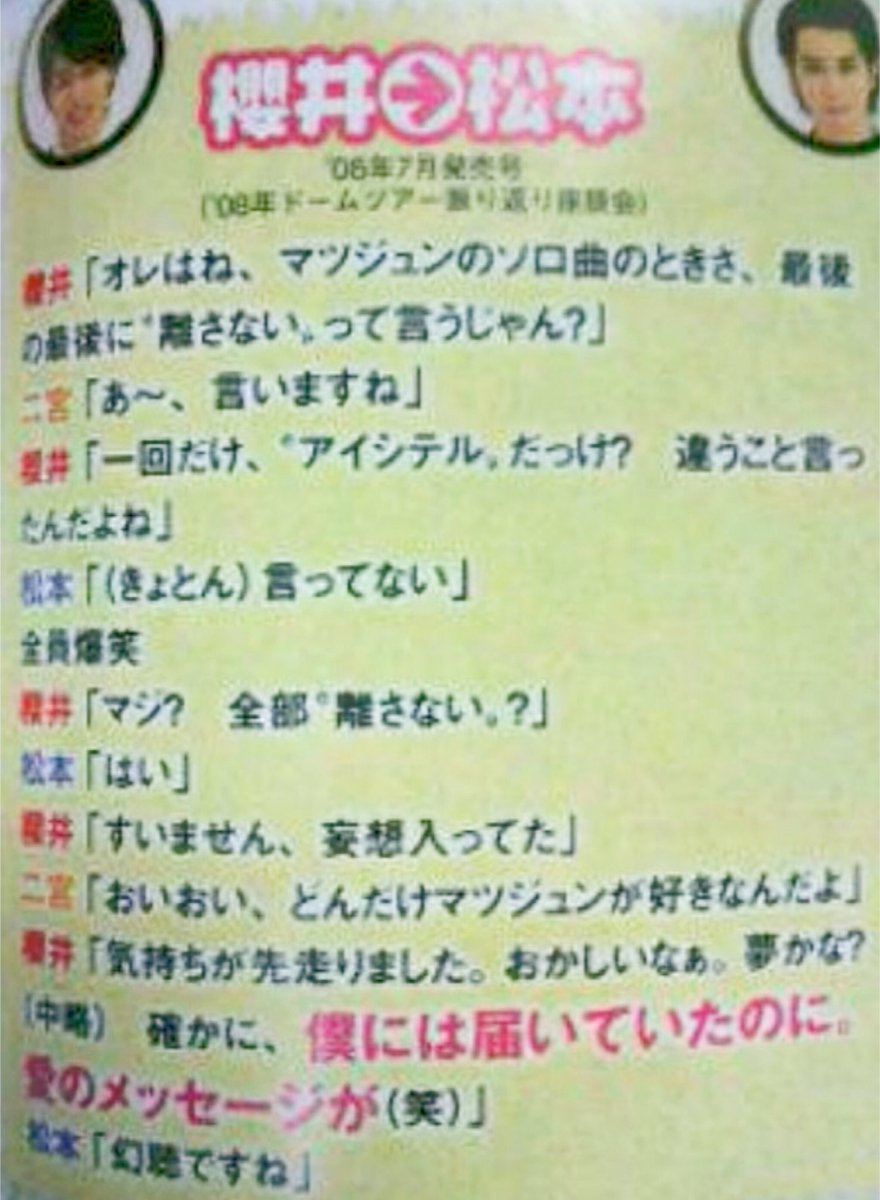 櫻井→松本
'08年7月発売号
('08年ドームツアー振り返り座談会)
櫻井「オレはね、マツジュンのソロ曲のときさ、最後
の最後に〝離さない〟って言うじゃん?」
二宮「あ〜、言いますね」
櫻井「一回だけ、〝アイシテル〟だっけ?　違うこと言っ
たんだよね」
松本「(きょとん)言ってない」
全員爆笑
櫻井「マジ?　全部〝離さない〟?」
松本「はい」
櫻井「すいません、妄想入ってた」
二宮「おいおい、どんだけマツジュンが好きなんだよ」
櫻井「気持ちが先走りました。おかしいなぁ。夢かな?
(中略)　確かに、僕には届いていたのに。
愛のメッセージが(笑)」
松本「幻聴ですね」